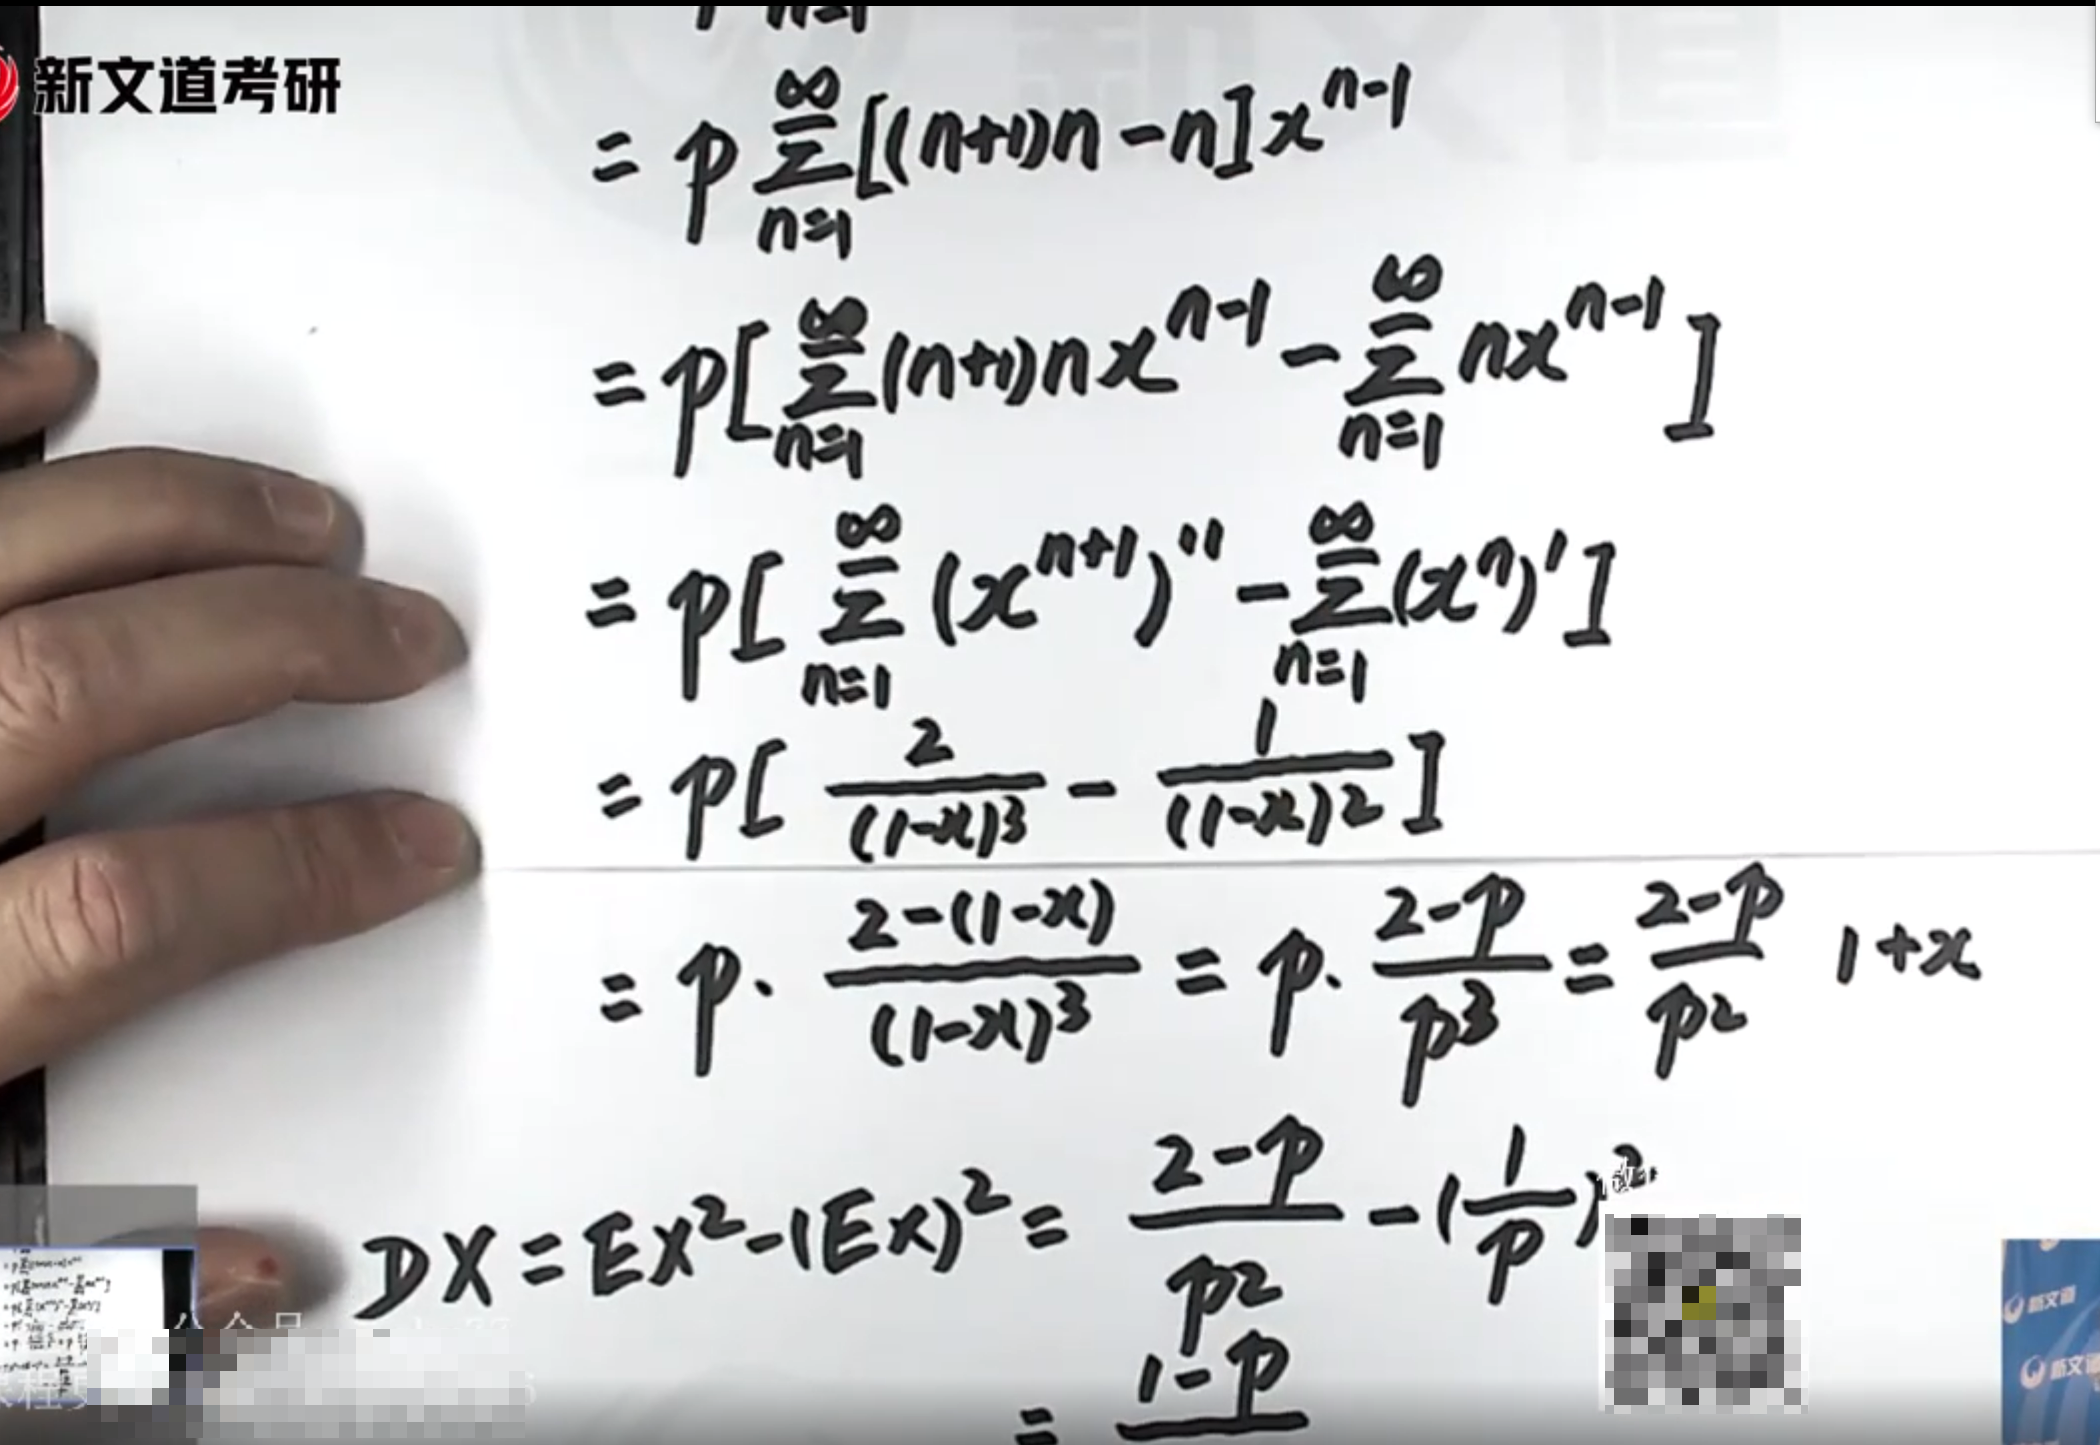 n=1
新文道考研
= p ∑_{n=1}^{∞} [(n+1)n - n] x^{n-1}
= p[ ∑_{n=1}^{∞} (n+1)n x^{n-1} - ∑_{n=1}^{∞} n x^{n-1} ]
= p[ ∑_{n=1}^{∞} (x^{n+1})'' - ∑_{n=1}^{∞} (x^n)' ]
= p[ \frac{2}{(1-x)^3} - \frac{1}{(1-x)^2} ]
= p · \frac{2-(1-x)}{(1-x)^3} = p · \frac{2-p}{p^3} = \frac{2-p}{p^2} 1+x
DX = EX^2 - (EX)^2 = \frac{2-p}{p^2} - (\frac{1}{p})^2
= \frac{1-p}{}
新文道
新文道